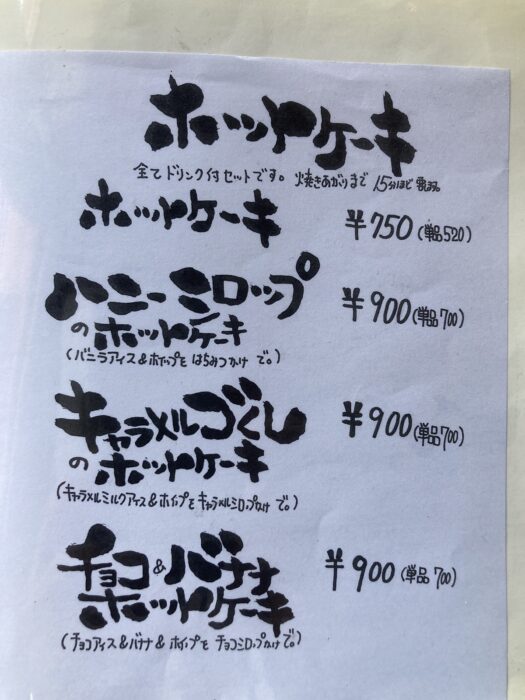 ホットケーキ
全てドリンク付セットです。焼きあがりまで 15分ほど
ホットケーキ ¥750(単品520)
ハニーシロップ ¥900(単品700)
のホットケーキ
(バニラアイス&ホイップを はちみつかけ で。)
キャラメルづくし ¥900(単品700)
のホットケーキ
(キャラメルミルクアイス&ホイップを キャラメルシロップかけ で。)
チョコ&バナナ ¥900(単品700)
ホットケーキ
(チョコアイス&バナナ&ホイップを チョコシロップかけで。)